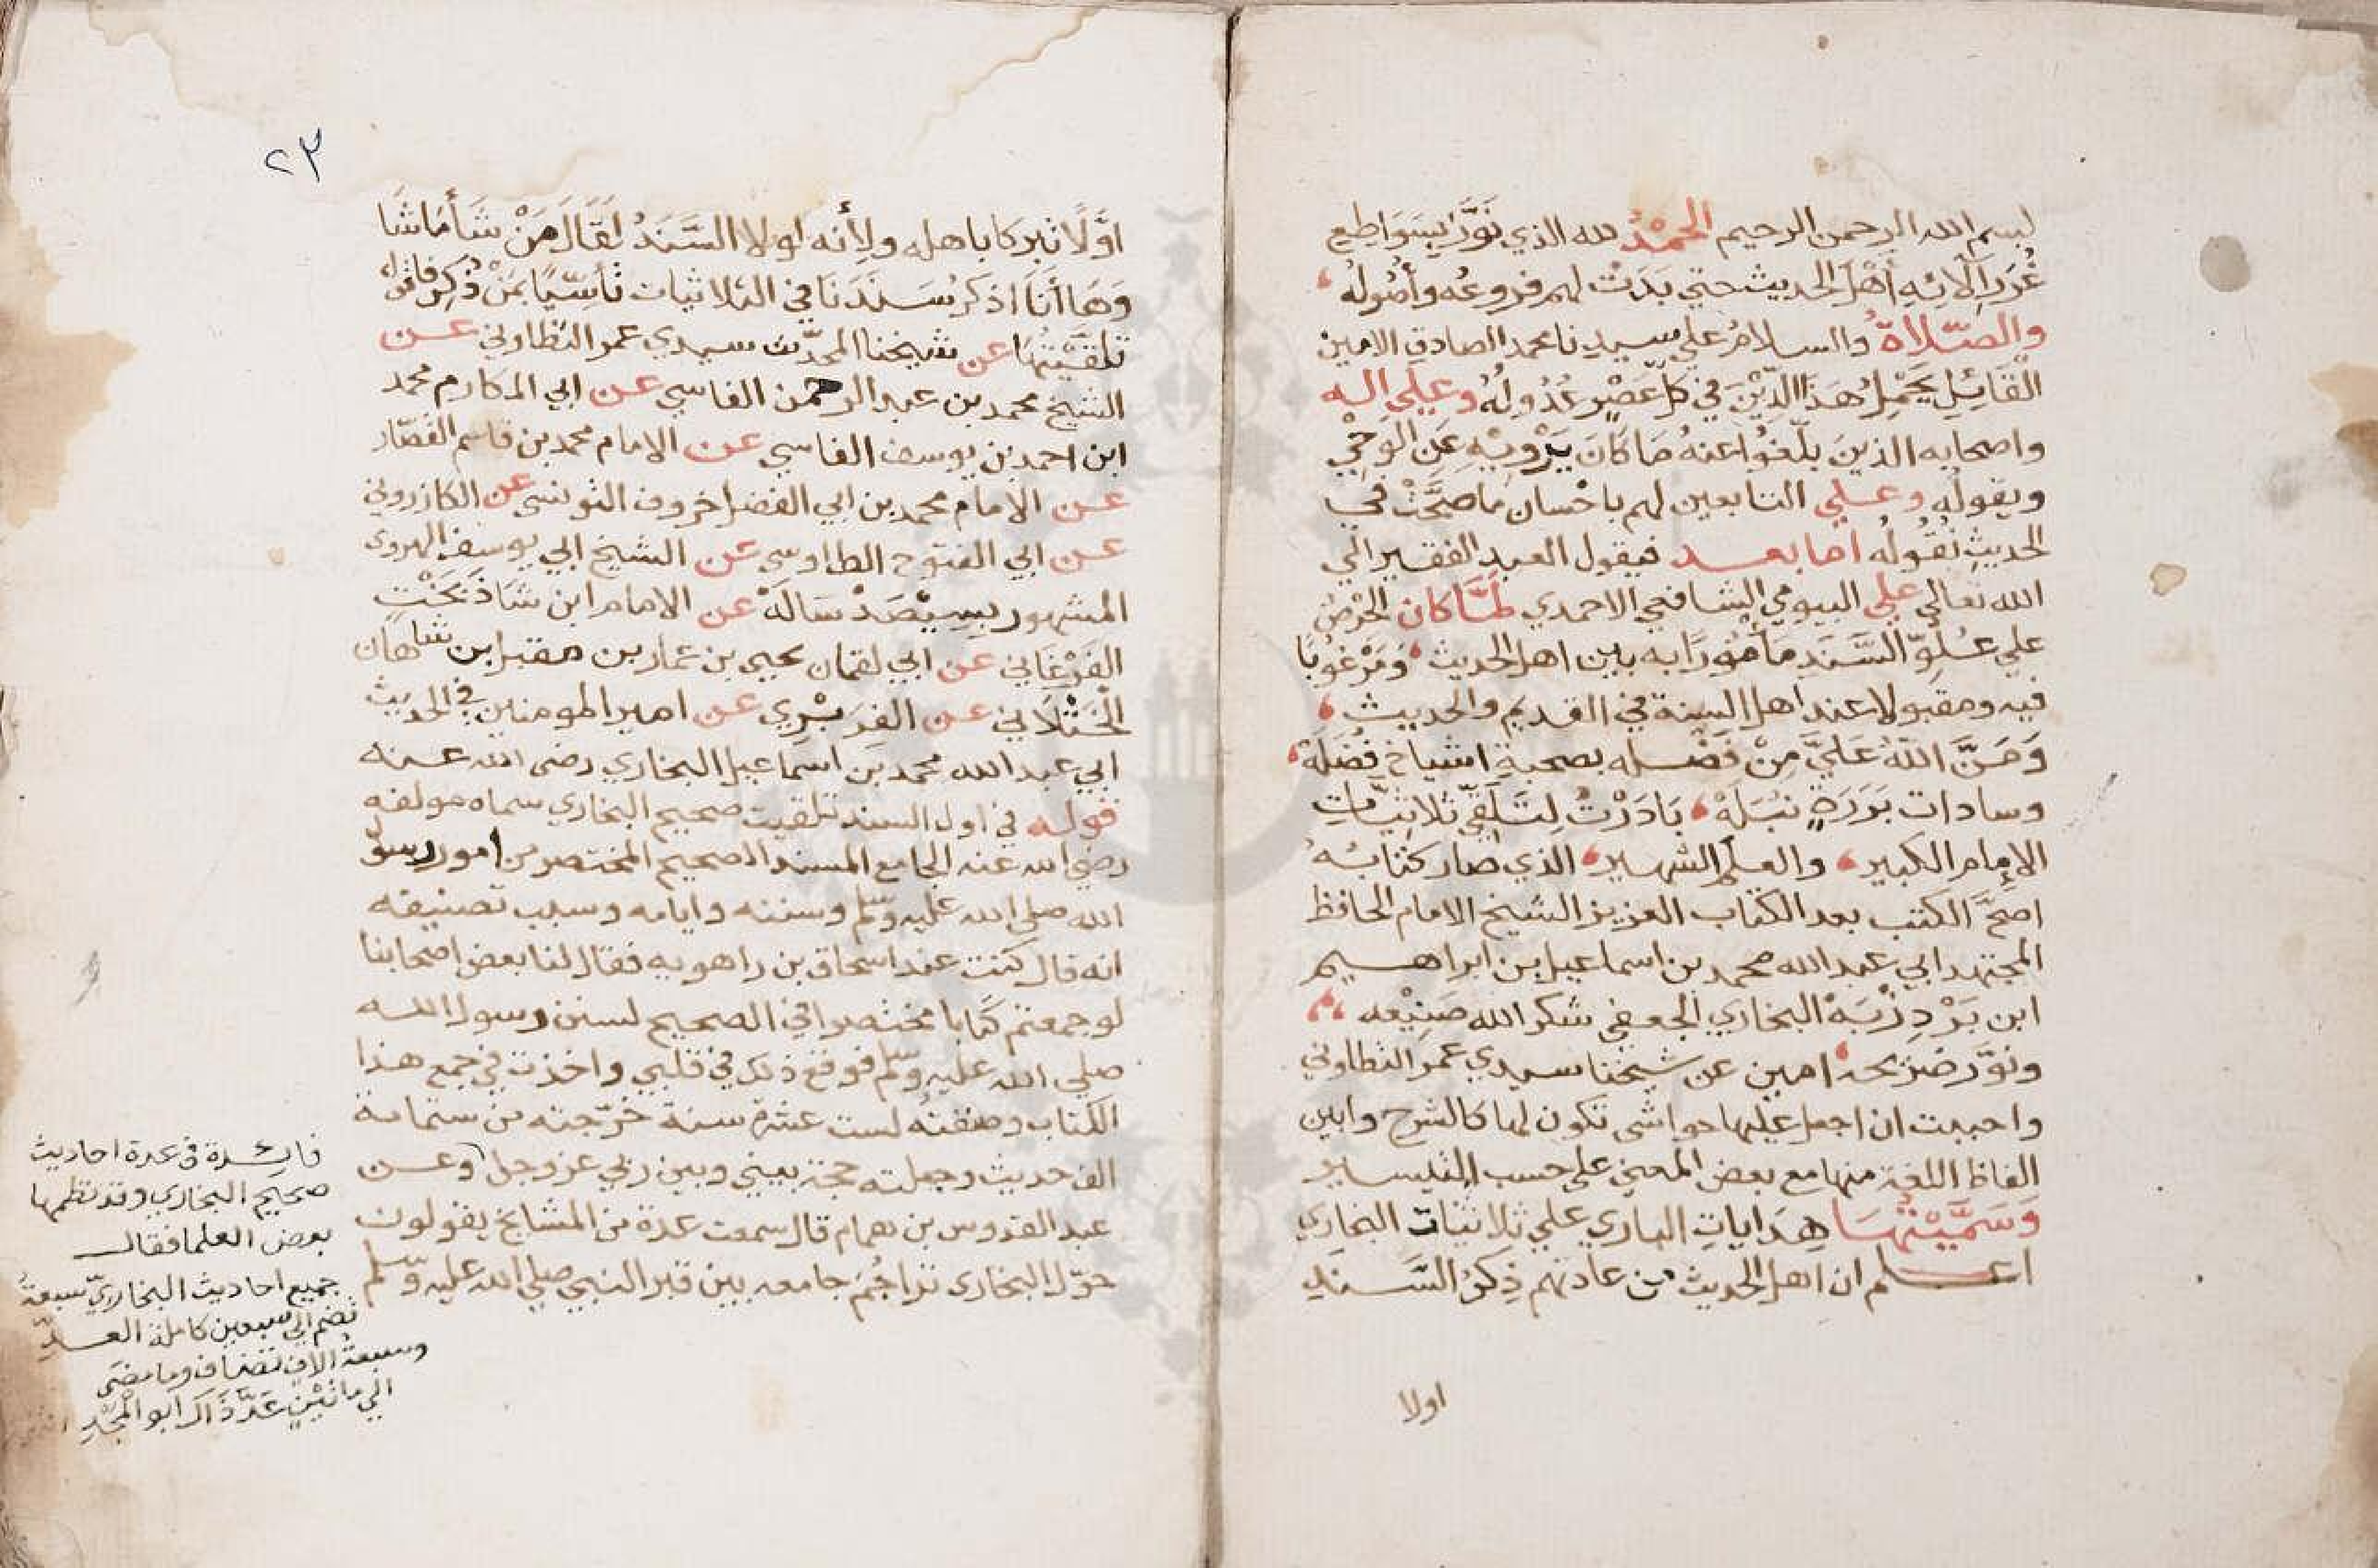 بسم الله الرحمن الرحيم الحمْدُ لله الذي نَوَّرَ بِسَوَاطِعِ
غُرَرِ آلَائِهِ أَهْلَ الحديث حتي بَدَتْ لهم فروعُه وأُصُولُه
والصَّلاةُ والسلامُ علي سيدنا محمد الصادق الامين
القَائِلِ يَحْمِلُ هَذَا الدِّيْنَ في كلِّ عَصْرٍ عُدُولُهُ وعلي اله
واصحابه الذينَ بلّغُوا عنهُ مَا كَانَ يَرْوِيْهِ عَنِ الوَحْيِ
ويقولُه وعلي التابعين لهم باحْسان مَا صَحَّتْ في
الحديثِ نُقُولُه اما بعد فيقول العبد الفقير الي
الله تعالي علي البيومي الشافعي الاحمدي لَمَّا كان الحْرصُ
علي عُلوِّ السَّنَدِ مَأمُورًا به بين اهل الحديث وَمَرْغُوبًا
فيه ومقبولا عند اهل السنة في القديم والحديث
وَمَنَّ اللهُ عَلَيَّ مِنْ فَضْله بصحبةِ اشياخ فُضَلَهْ
وسادات بَرَرَةٍ نُبَلَهْ بَادَرْتُ لِتَلَقِّي ثلاثِيَّاتِ
الإمام الكبير والعَلَمِ الشهير الذي صار كتابُهُ
اصَحَّ الكتب بعد الكتاب العزيز الشيخ الامام الحافظ
المجتهد ابي عبد الله محمد بن اسماعيل بن ابراهيم
ابن بَرْدِزْبَهْ البخاري الجعفي شكر الله صَنِيْعه
ونَوَّر ضريحه امين عن شيخنا سيدي عمر التطاوني
واحببت ان اجعل عليها حواشي تكون لها كالشرح وابين
الفاظ اللغة منها مع بعض المعني علي حسب التيسير
وَسَمَّيْتُهَا هِدَاياتِ الباري علي ثلاثيات البخاري
اعلم ان اهل الحديث من عادتهم ذِكرُ السَّنَدِ
اولا
٢٣
اوَّلًا تبركا باهله ولِأَنه لولا السَّنَدُ لَقَالَ مَنْ شَأ مَا شَا
وَهَا أَنَا اذكرُ سَنَدَنَا في الثلاثيات تأسِّيًا بمَنْ ذُكِرَ فاقول
تلقَّيتُهَا عن شيخنا المحدِّث سيدي عمر التطاوني عن
الشيخ محمد بن عبد الرحمن الفاسي عن ابي المكارم محمد
ابن احمد بن يوسف الفاسي عن الامام محمد بن قاسم القصّار
عن الامام محمد بن ابي الفضل خروف التونسي عن الكازروني
عن ابي الفتوح الطاوسي عن الشيخ ابي يوسف الهروي
المشهور بسِيْصَدْ سَالَهْ عن الامام ابن شَاذْبَخْتِ
الفَرْغَانِي عن ابي لقمان يحيي بن عمار بن مقبل بن شاهان
الخَتْلَانِي عن الفَرَبْرِي عن امير المومنين في الحديث
ابي عبد الله محمد بن اسماعيل البخاري رضى الله عنه
قوله في اول السند تلقيت صحيح البخاري سماه مولفه
رضي الله عنه الجامع المسند الصحيح المختصر من امور رسول
الله صلي الله عليه وسلم وسننه وايامه وسبب تصنيفه
انه قال كنت عند اسحاق بن راهويه فقال لنا بعض اصحابنا
لو جمعتم كتابا مختصرا في الصحيح لسنن رسول الله
صلي الله عليه وسلم فوقع ذلك في قلبي واخذت في جمع هذا
الكتاب وصنفتُه لست عشرة سنة خرّجته من ستماية
الف حديث وجعلته حجة بيني وبين ربي عز وجل وعن
عبد القدوس بن همام قال سمعت عدة من المشايخ يقولون
حوّل البخاري تراجُمَ جامعه بين قبر النبي صلي الله عليه وسلم
فايدة في عدة احاديث
صحيح البخاري وقد نظمها
بعض العلما فقال
جميع احاديث البخاريّ سبعةُ
تضم الي سبعين كاملة العدِّ
وسبعةُ الافٍ تضاف وما مضَى
الي مائتيْنِ عَدَّ ذاكَ ابو المجْدِ